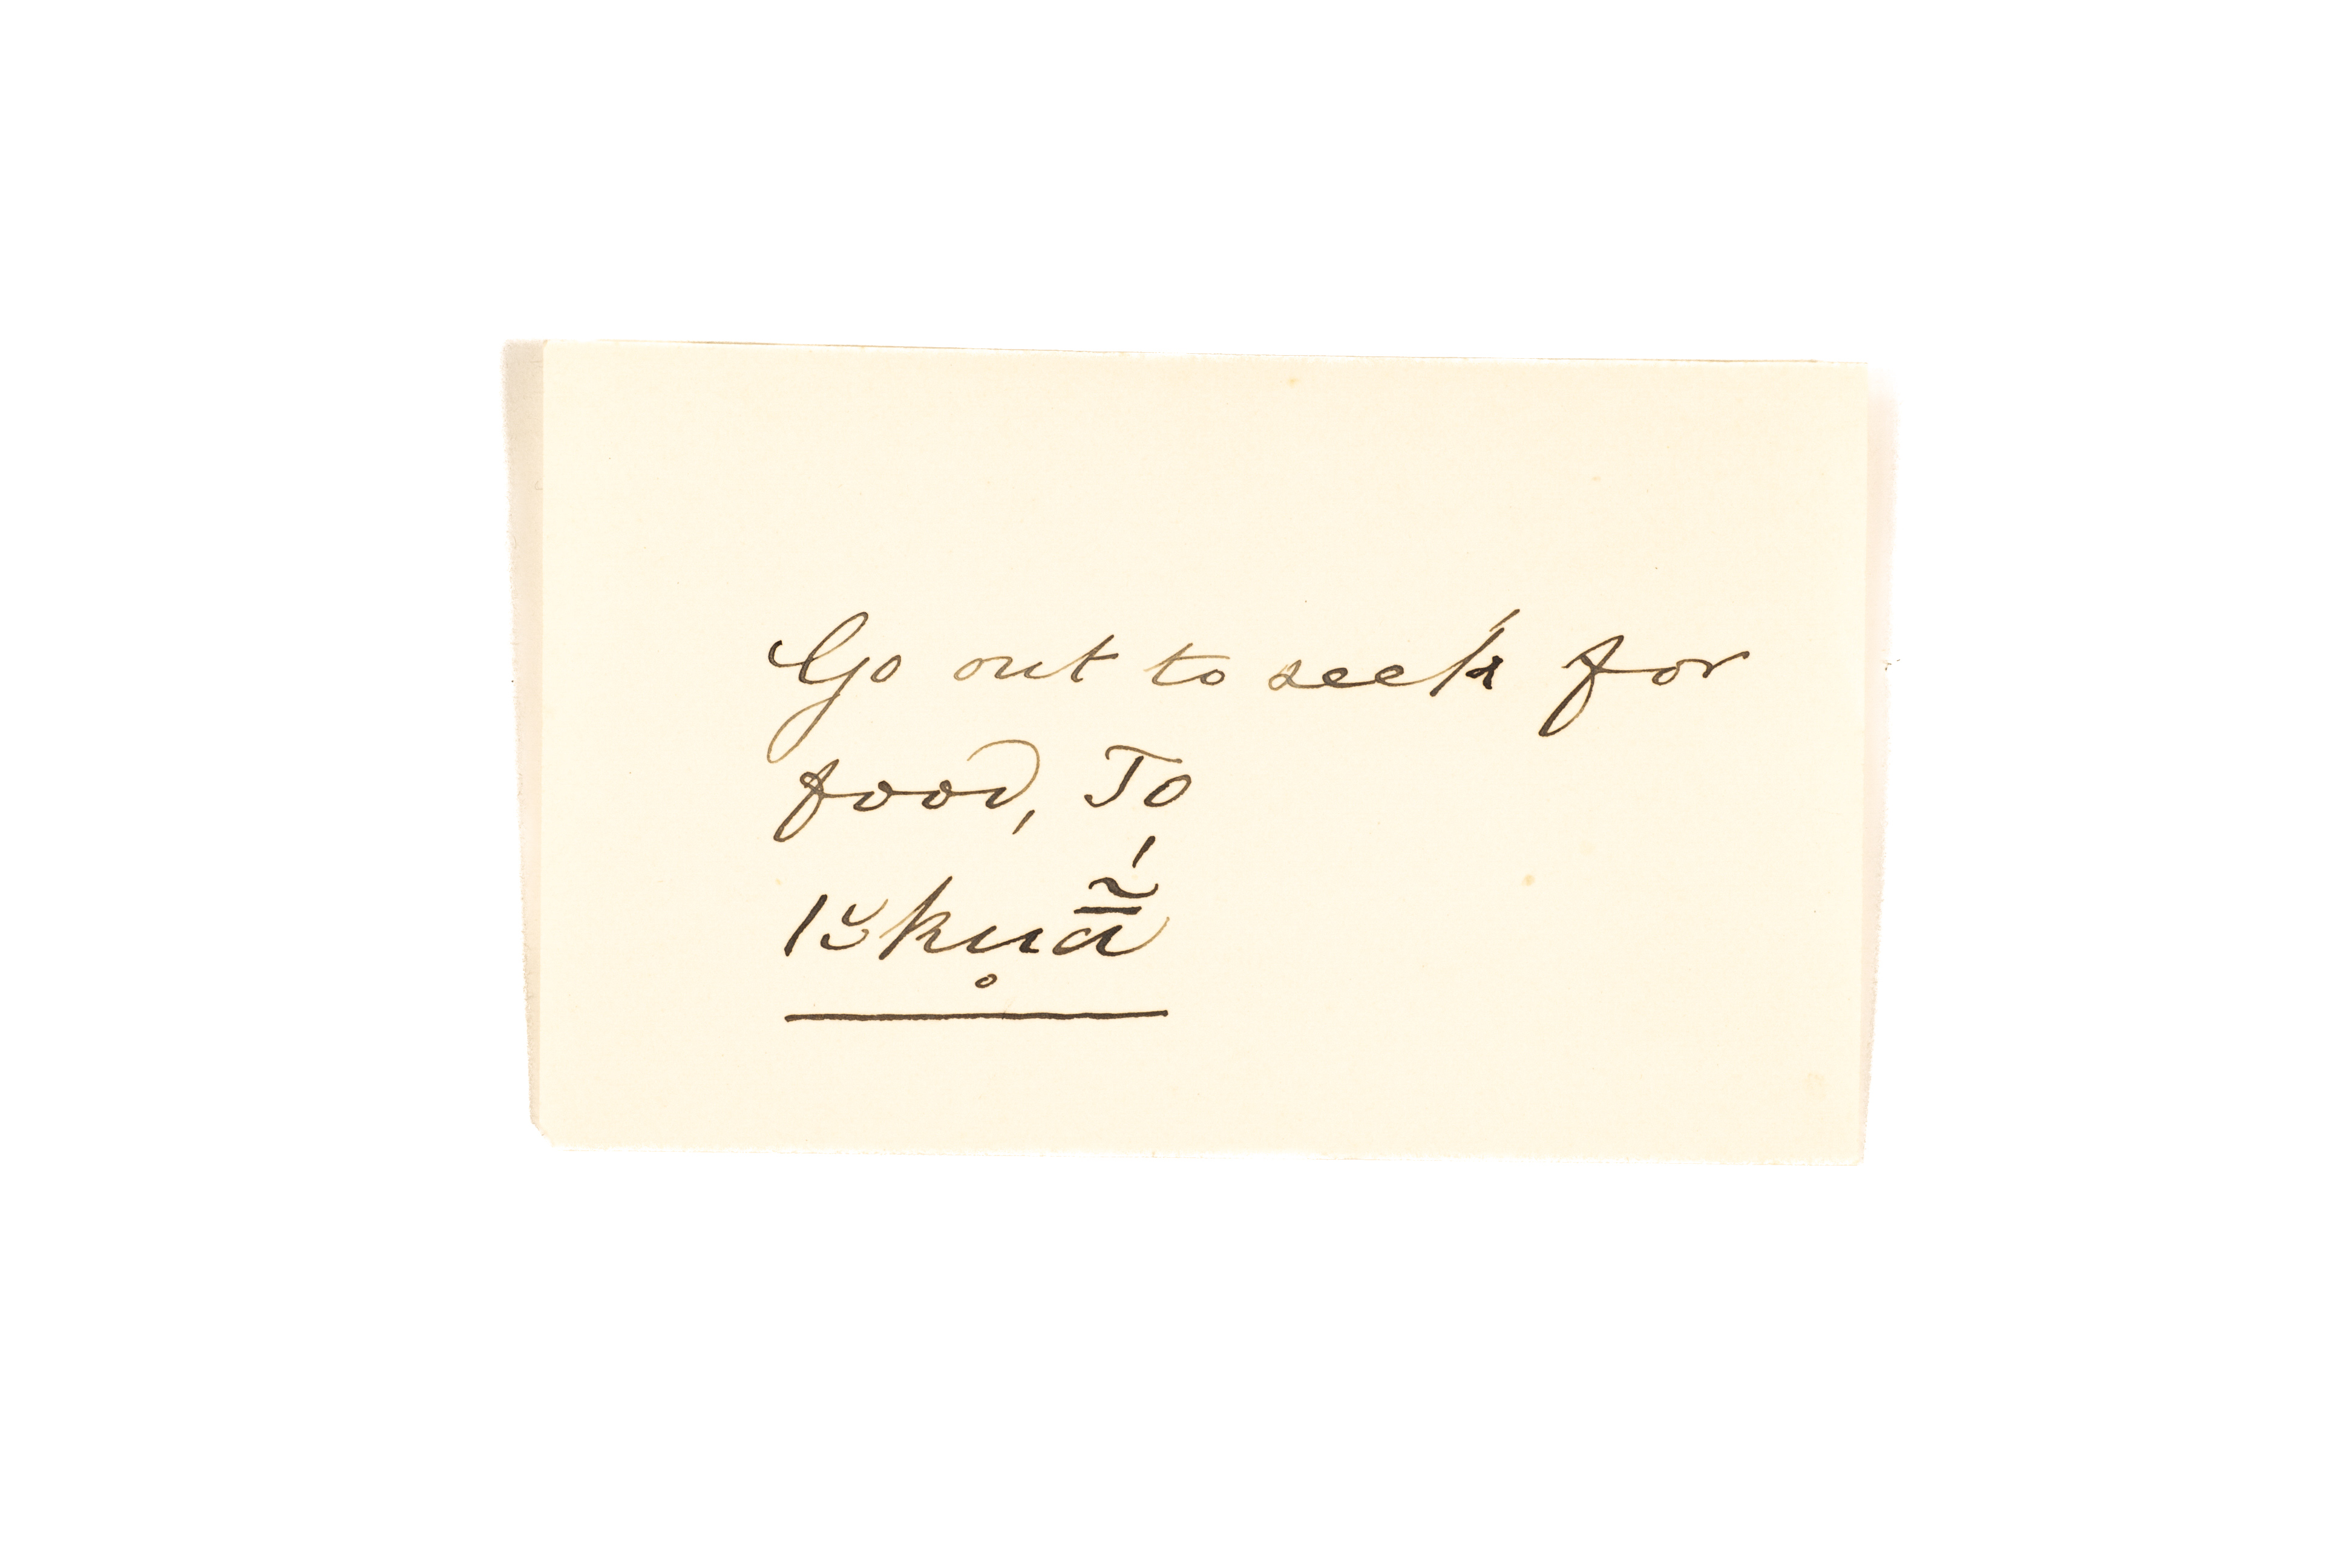 Go out to seek for
food, To
ǀɔ̆ku̥ā̃́